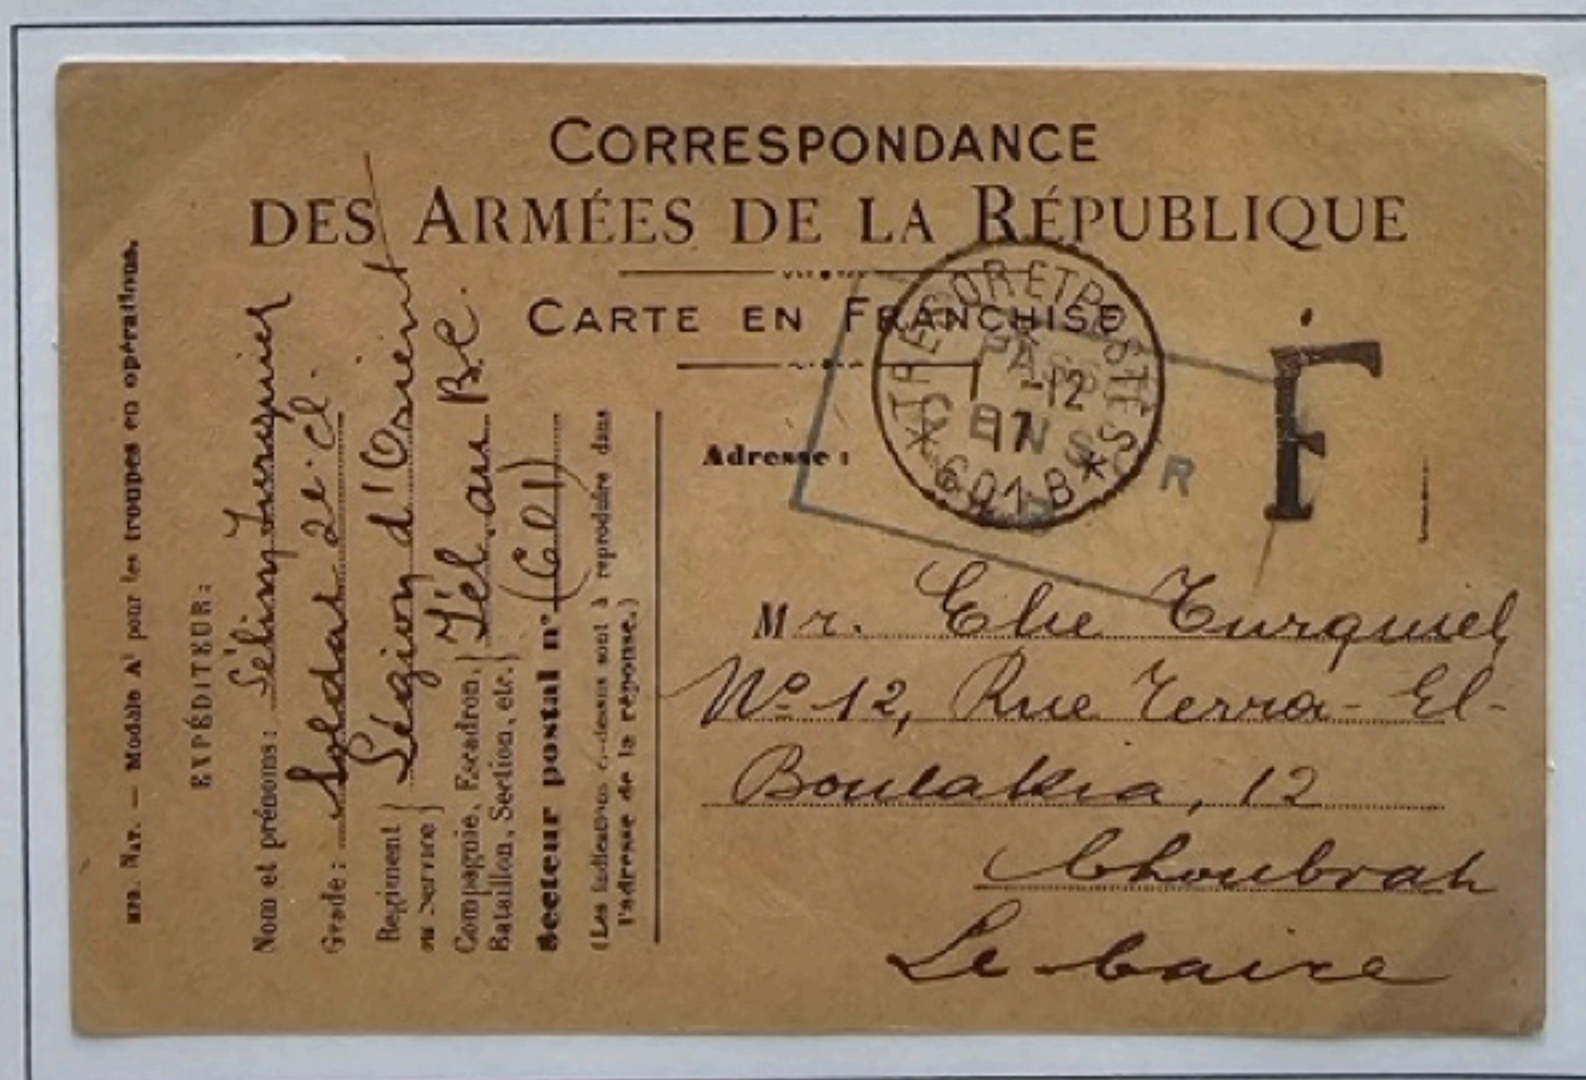 CORRESPONDANCE
DES ARMÉES DE LA RÉPUBLIQUE
CARTE EN FRANCHISE
TRESOR ET POSTES
1-12
17
* 601 B *
PASS
CENSOR
F
Adresse :
Mr. Elie Turquiel
No 12, Rue Terra-El-
Boulakia, 12
Choubrah
Le Caire
IMP. NAT. — Modèle A' pour les troupes en opérations.
EXPÉDITEUR :
Nom et prénoms : Sélim
Grade : Soldat 2e Cl.
Régiment ou Service } Légion d'Orient
Compagnie, Escadron, Bataillon, Section, etc. } Tél. au BC.
Secteur postal n° (601)
(Les indications ci-dessus sont à reproduire dans
l'adresse de la réponse.)